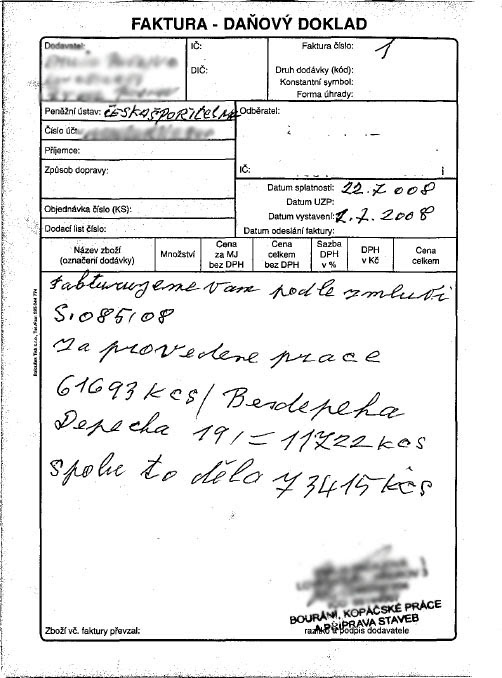 FAKTURA - DAŇOVÝ DOKLAD
Dodavatel:
IČ:
DIČ:
Faktura číslo: 1
Druh dodávky (kód):
Konstantní symbol:
Forma úhrady:
Peněžní ústav: ČESKÁ SPOŘITELNA
Číslo účtu:
Příjemce:
Způsob dopravy:
Objednávka číslo (KS):
Dodací list číslo:
Odběratel:
IČ:
Datum splatnosti: 22.7 008
Datum UZP:
Datum vystavení: 2.7.2008
Datum odeslání faktury:
Název zboží (označení dodávky)
Množství
Cena za MJ bez DPH
Cena celkem bez DPH
Sazba DPH v %
DPH v Kč
Cena celkem
Fakturujeme Vam podle zmluvi
S.085/08
Za provedene prace
61693 kcs/ Bezdepeha
Depecha 19/= 11722 kcs
Spolu to děla 73415 kčs
BOURÁNÍ, KOPÁČSKÉ PRÁCE
A PŘÍPRAVA STAVEB
Zboží vč. faktury převzal:
razítko a podpis dodavatele